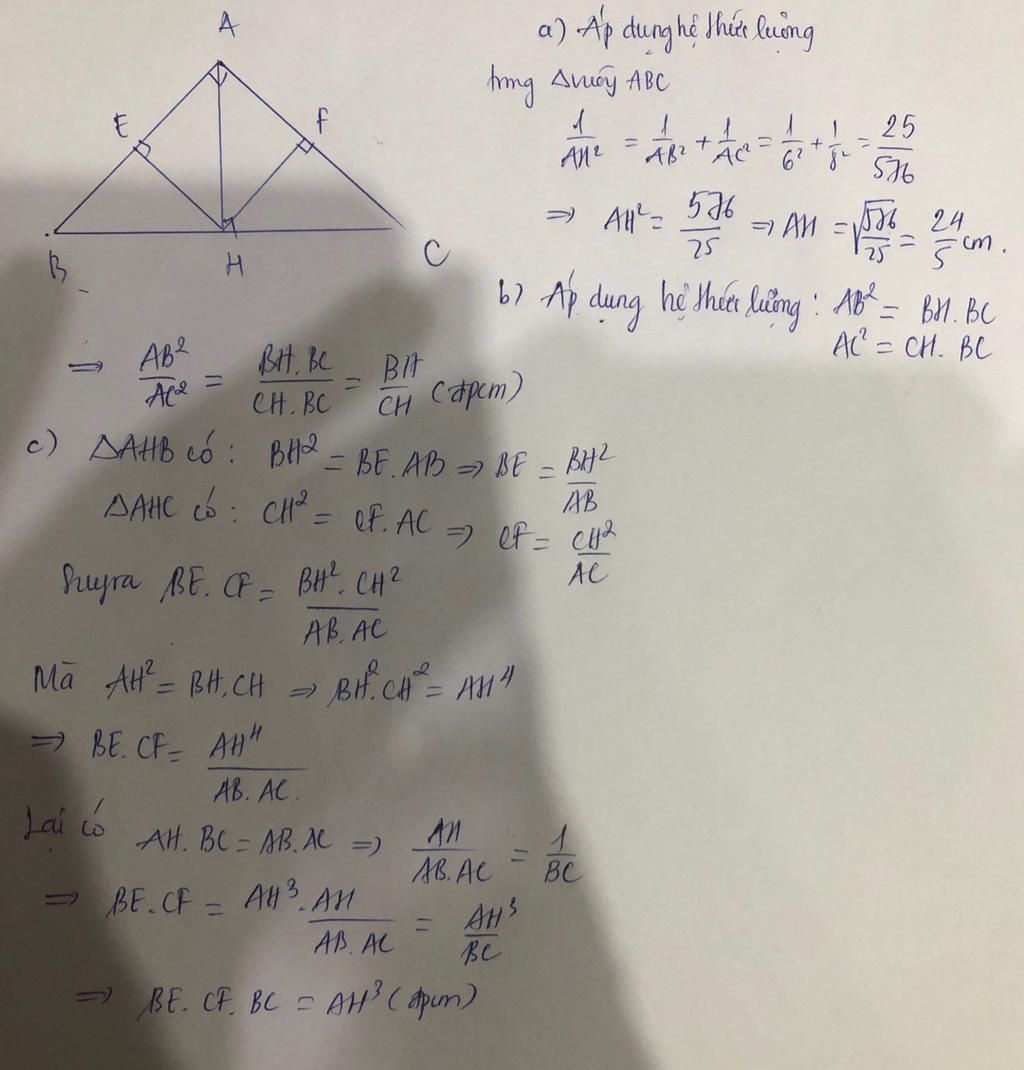 A
E
F
B
H
C
a) Áp dụng hệ thức lượng
trong Δvuông ABC
1/AH² = 1/AB² + 1/AC² = 1/6² + 1/8² = 25/576
=> AH² = 576/25 => AH = √576/25 = 24/5 cm.
b) Áp dụng hệ thức lượng: AB² = BH.BC
AC² = CH.BC
=> AB²/AC² = BH.BC/CH.BC = BH/CH (đpcm)
c) ΔAHB có: BH² = BE.AB => BE = BH²/AB
ΔAHC có: CH² = CF.AC => CF = CH²/AC
Suy ra BE.CF = BH².CH²/AB.AC
Mà AH² = BH.CH => BH².CH² = AH⁴
=> BE.CF = AH⁴/AB.AC.
Lại có AH.BC = AB.AC => AH/AB.AC = 1/BC
=> BE.CF = AH³.AH/AB.AC = AH³/BC
=> BE.CF.BC = AH³ (đpcm)